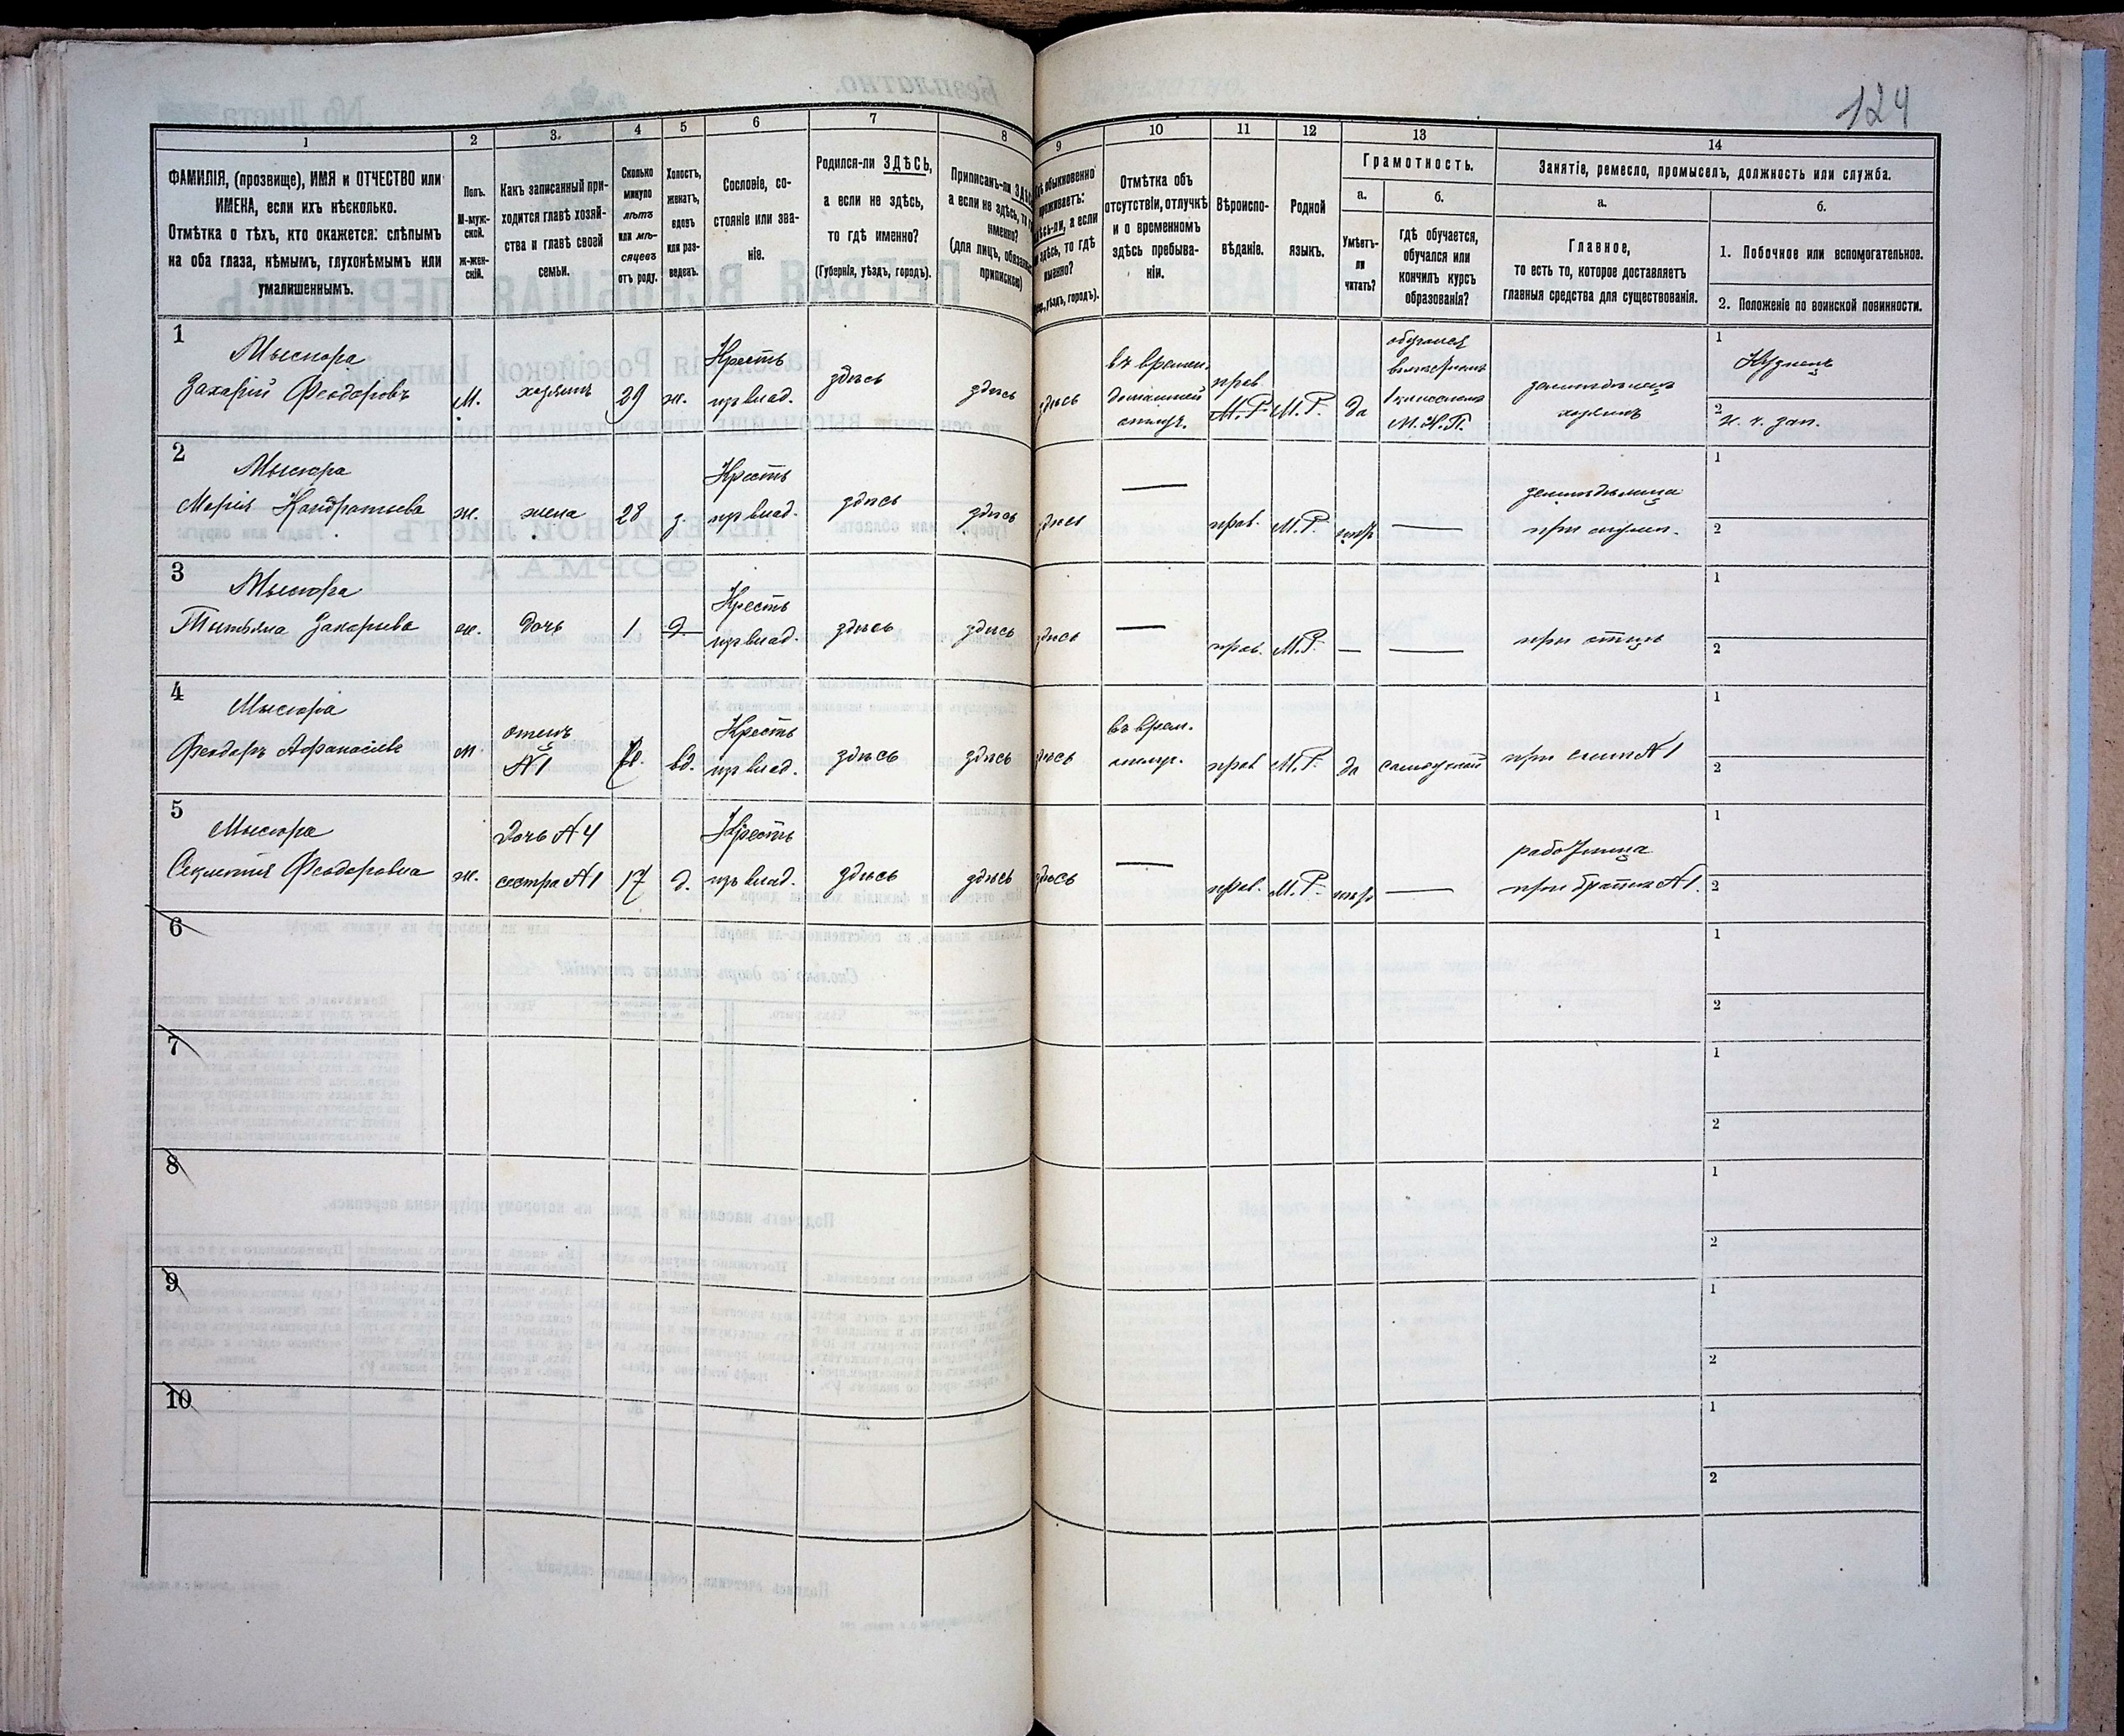 124
1
2
3.
4
5
6
7
8
9
10
11
12
13
14
ФАМИЛІЯ, (прозвище), ИМЯ и ОТЧЕСТВО или
ИМЕНА, если ихъ нѣсколько.
Отмѣтка о тѣхъ, кто окажется: слѣпымъ
на оба глаза, нѣмымъ, глухонѣмымъ или
умалишеннымъ.
Полъ.
М-муж-
ской.
ж-жен-
скій.
Какъ записанный при-
ходится главѣ хозяй-
ства и главѣ своей
семьи.
Сколько
минуло
лѣтъ
или мѣ-
сяцевъ
отъ роду.
Холостъ,
женатъ,
вдовъ
или раз-
веденъ.
Сословіе, со-
стояніе или зва-
ніе.
Родился-ли ЗДѢСЬ,
а если не здѣсь,
то гдѣ именно?
(Губернія, уѣздъ, городъ).
Приписанъ-ли
а если не здѣсь,
именно?
(для лицъ,
припискою)
обыкновенно
проживаетъ:
а если
здѣсь, то гдѣ
именно?
уѣздъ, городъ).
Отмѣтка объ
отсутствіи, отлучкѣ
и о временномъ
здѣсь пребыва-
ніи.
Вѣроиспо-
вѣданіе.
Родной
языкъ.
Грамотность.
а.
б.
Умѣетъ-
ли
читать?
гдѣ обучается,
обучался или
кончилъ курсъ
образованія?
Занятіе, ремесло, промыселъ, должность или служба.
а.
б.
Главное,
то есть то, которое доставляетъ
главныя средства для существованія.
1. Побочное или вспомогательное.
2. Положеніе по воинской повинности.
1
Мысюра
Захарій Феодоровъ
М.
хозяинъ
29
ж.
Крестъ
изъ влад.
здѣсь
здѣсь
здѣсь
въ времен.
домашней
отлуч.
прав.
М.Р.
М.Р.
да
обучался
М.Н.П.
земледѣлецъ
хозяинъ
1
Кузнецъ
2
2
Мысюра
Марія Кондратьева
ж.
жена
28
з.
Крестъ
изъ влад.
здѣсь
здѣсь
здѣсь
—
прав.
М.Р.
—
земледѣлица
1
2
3
Мысюра
Татьяна Захарьева
ж.
дочь
1
д.
Крестъ
изъ влад.
здѣсь
здѣсь
здѣсь
—
прав.
М.Р.
—
—
при отцѣ
1
2
4
Мысюра
Феодоръ Афанасіевъ
м.
отецъ
№1
вд.
Крестъ
изъ влад.
здѣсь
здѣсь
здѣсь
въ врем.
отлуч.
прав
М.Р.
да
самоучкой
при сынѣ №1
1
2
5
Мысюра
Феодоровна
ж.
дочь №4
сестра №1
17
д.
Крестъ
изъ влад.
здѣсь
здѣсь
здѣсь
—
прав.
М.Р.
—
работница
при братѣ №1.
1
2
6
1
2
7
1
2
8
1
2
9
1
2
10
1
2